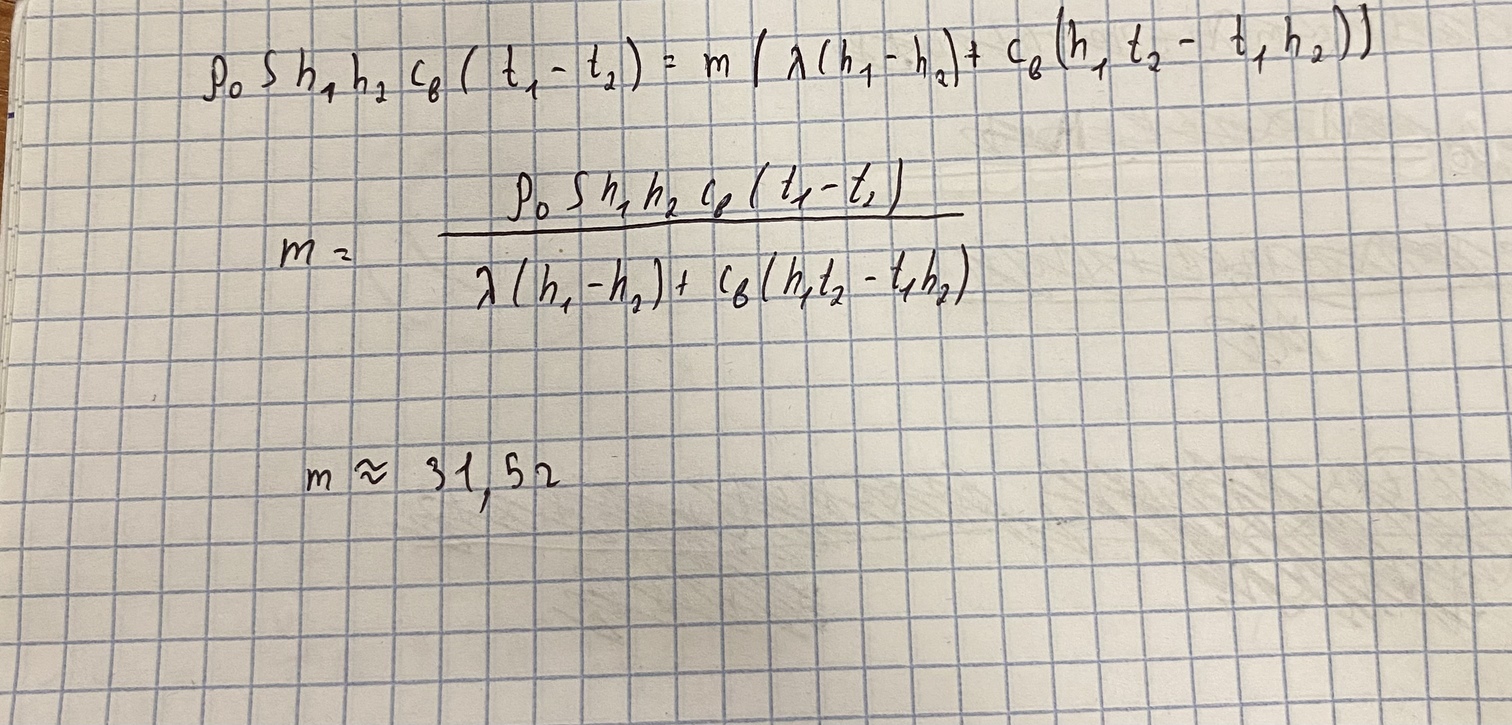 ρ₀ S h₁ h₂ cв ( t₁ - t₂ ) = m ( λ(h₁ - h₂) + cв (h₁ t₂ - t₁ h₂ ))
ρ₀ S h₁ h₂ cв ( t₁ - t₂ )
m =
λ ( h₁ - h₂ ) + cв ( h₁t₂ - t₁h₂ )
m ≈ 31,52